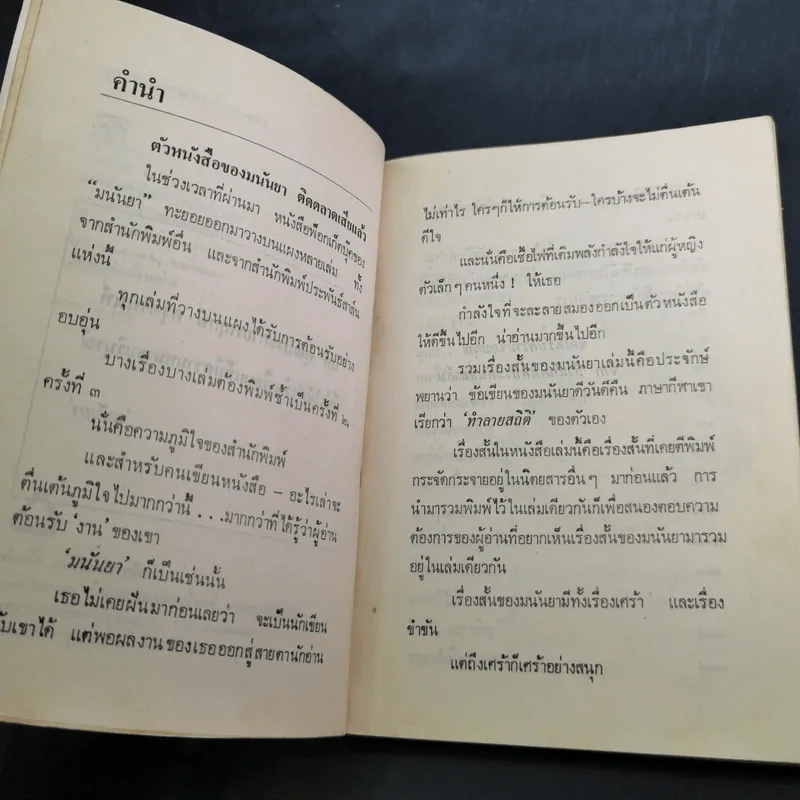 คำนำ
ตัวหนังสือของมนันยา ติดตลาดเสียแล้ว
ในช่วงเวลาที่ผ่านมา หนังสือพ็อกเก็ตบุ๊คของ
“มนันยา” ทะยอยออกมาวางบนแผงหลายเล่ม ทั้ง
จากสำนักพิมพ์อื่น และจากสำนักพิมพ์ประพันธ์สาส์น
แห่งนี้
ทุกเล่มที่วางบนแผงได้รับการต้อนรับอย่าง
อบอุ่น
บางเรื่องบางเล่มต้องพิมพ์ซ้ำเป็นครั้งที่ ๒,
ครั้งที่ ๓
นั่นคือความภูมิใจของสำนักพิมพ์
และสำหรับคนเขียนหนังสือ – อะไรเล่าจะ
ตื่นเต้นภูมิใจไปมากกว่านี้ . . .มากกว่าที่ได้รู้ว่าผู้อ่าน
ต้อนรับ ‘งาน’ ของเขา
‘มนันยา’ ก็เป็นเช่นนั้น
เธอไม่เคยฝันมาก่อนเลยว่า จะเป็นนักเขียน
กับเขาได้ แต่พอผลงานของเธอออกสู่สายตานักอ่าน
ไม่เท่าไร ใครๆก็ให้การต้อนรับ–ใครบ้างจะไม่ตื่นเต้น
ดีใจ
และนั่นคือเชื้อไฟที่เติมพลังกำลังใจให้แก่ผู้หญิง
ตัวเล็กๆคนหนึ่ง ! ให้เธอ
กำลังใจที่จะละลายสมองออกเป็นตัวหนังสือ
ให้ดีขึ้นไปอีก น่าอ่านมากขึ้นไปอีก
รวมเรื่องสั้นของมนันยาเล่มนี้คือประจักษ์
พยานว่า ข้อเขียนของมนันยาดีวันดีคืน ภาษากีฬาเขา
เรียกว่า ‘ทำลายสถิติ’ ของตัวเอง
เรื่องสั้นในหนังสือเล่มนี้คือเรื่องสั้นที่เคยตีพิมพ์
กระจัดกระจายอยู่ในนิตยสารอื่นๆ มาก่อนแล้ว การ
นำมารวมพิมพ์ไว้ในเล่มเดียวกันก็เพื่อสนองตอบความ
ต้องการของผู้อ่านที่อยากเห็นเรื่องสั้นของมนันยามารวม
อยู่ในเล่มเดียวกัน
เรื่องสั้นของมนันยามีทั้งเรื่องเศร้า และเรื่อง
ขำขัน
แต่ถึงเศร้าก็เศร้าอย่างสนุก